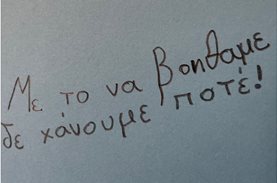 Με το να βοηθαμε
δε χάνουμε ποτέ!